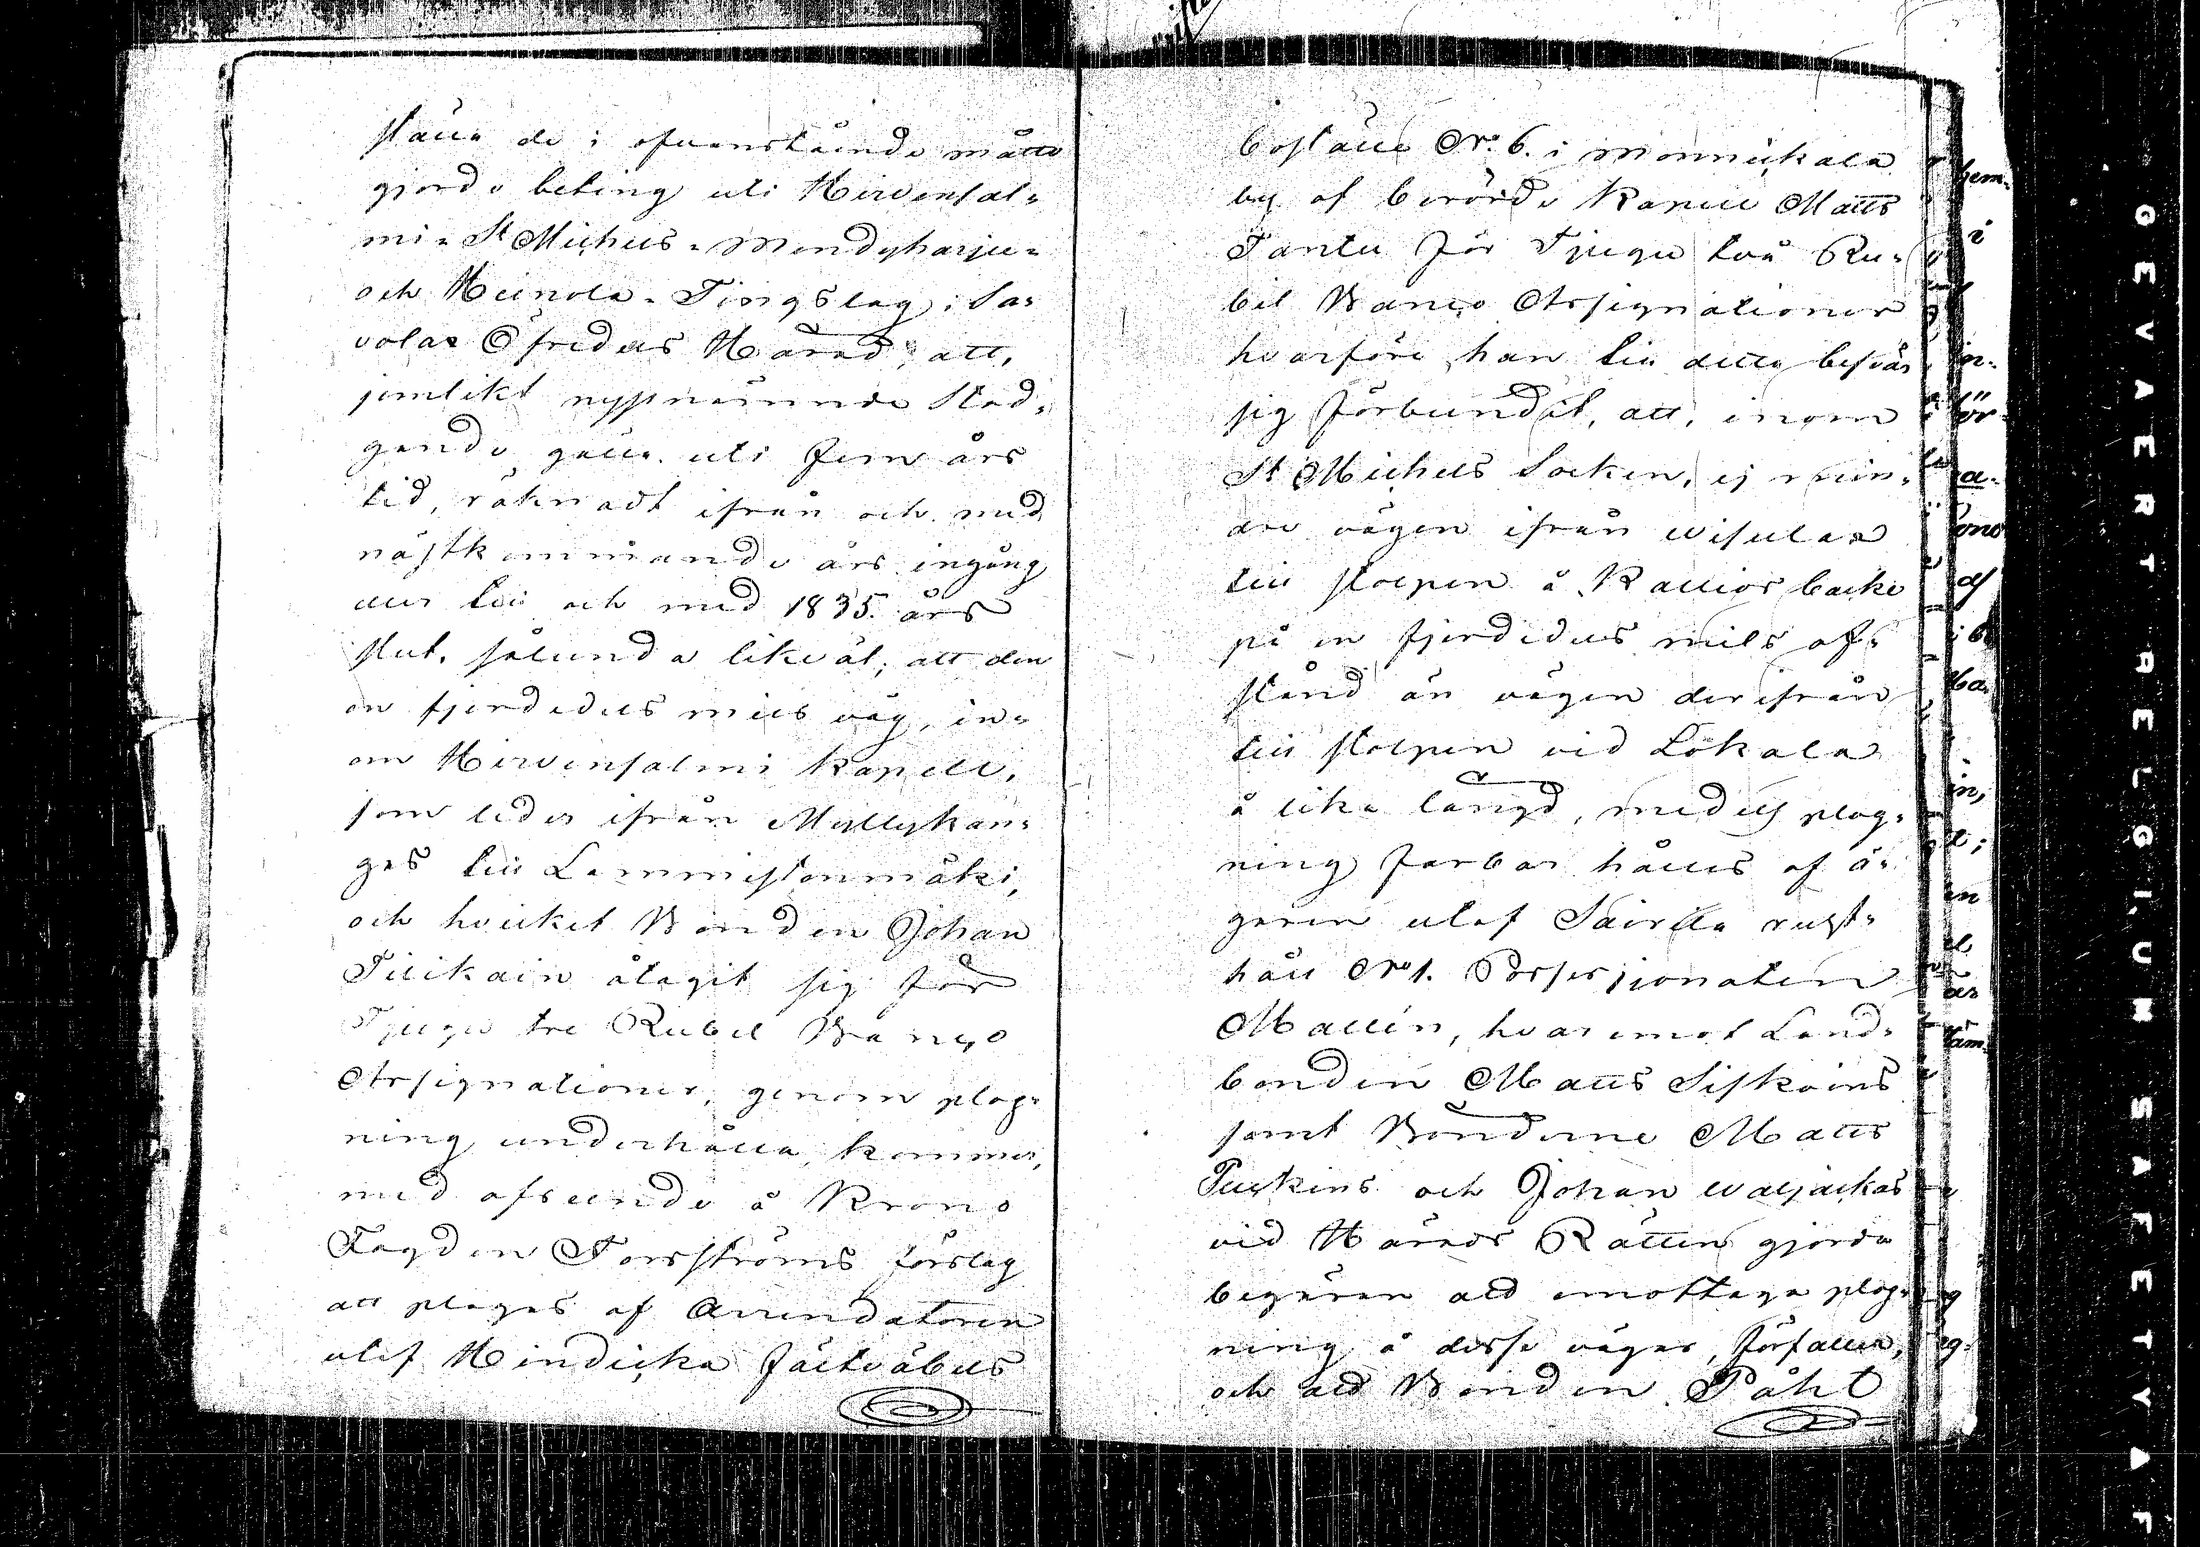 ställa de i ofvanstående måtto
gjorde beting uti Hirvensal-
mi- St Michels- Mendyharju-
och Heinola- Tingslag i Sa-
volax Öfredels Härad, att,
jemlikt nyssnämnde Stad-
gande, gälla uti Fem års
tid, räknadt ifrån och med
nästkommande års ingång
eller till och med 1835. års
slut, sålunda likväl, att den
en fjerdedels mils väg, in-
om Hirvensalmi kapell,
som leder ifrån Myllykan-
gas till Lammistenmäki,
och hvilket Bonden Johan
Tiilikain åtagit sig för
Tjugu tre Rubel Banco
Assignationer, genom plog-
ning underhålla, kommer,
med afseende å Krono
Fogden Forsströms förslag
att plogas af Arrendatoren
utaf Hindicka Fältväbels
boställe No. 6. i Monnickala
by af berörde Kapell Matts
Tantu för Tjugu två Ru-
bel Banco Assignationer
hvarföre han till detta besvär
sig förbundit, att, inom
St Michels Socken, ej min-
dre vägen ifrån Wisulax
till stolpen å Kallios backe
på en fjerdedels mils af-
stånd än vägen derifrån
till stolpen vid Lökala
å lika längd, medelst plog-
ning farbar hålles af ä-
garen utaf Sairila rust-
håll No 1. Possessionaten
Mallén, hvaremot Land-
bonden Matts Siskoins
samt Bönderne Matts
Puskins och Johan Waljackas
vid Härads Rätten gjorda
begäran att emottaga plog-
ning å desse vägar, förfaller,
och att Bonden Påhl
hem-
i
in-
för-
a-
af
in,
en
g
GEVAERT RELGIUM SAFETY AF